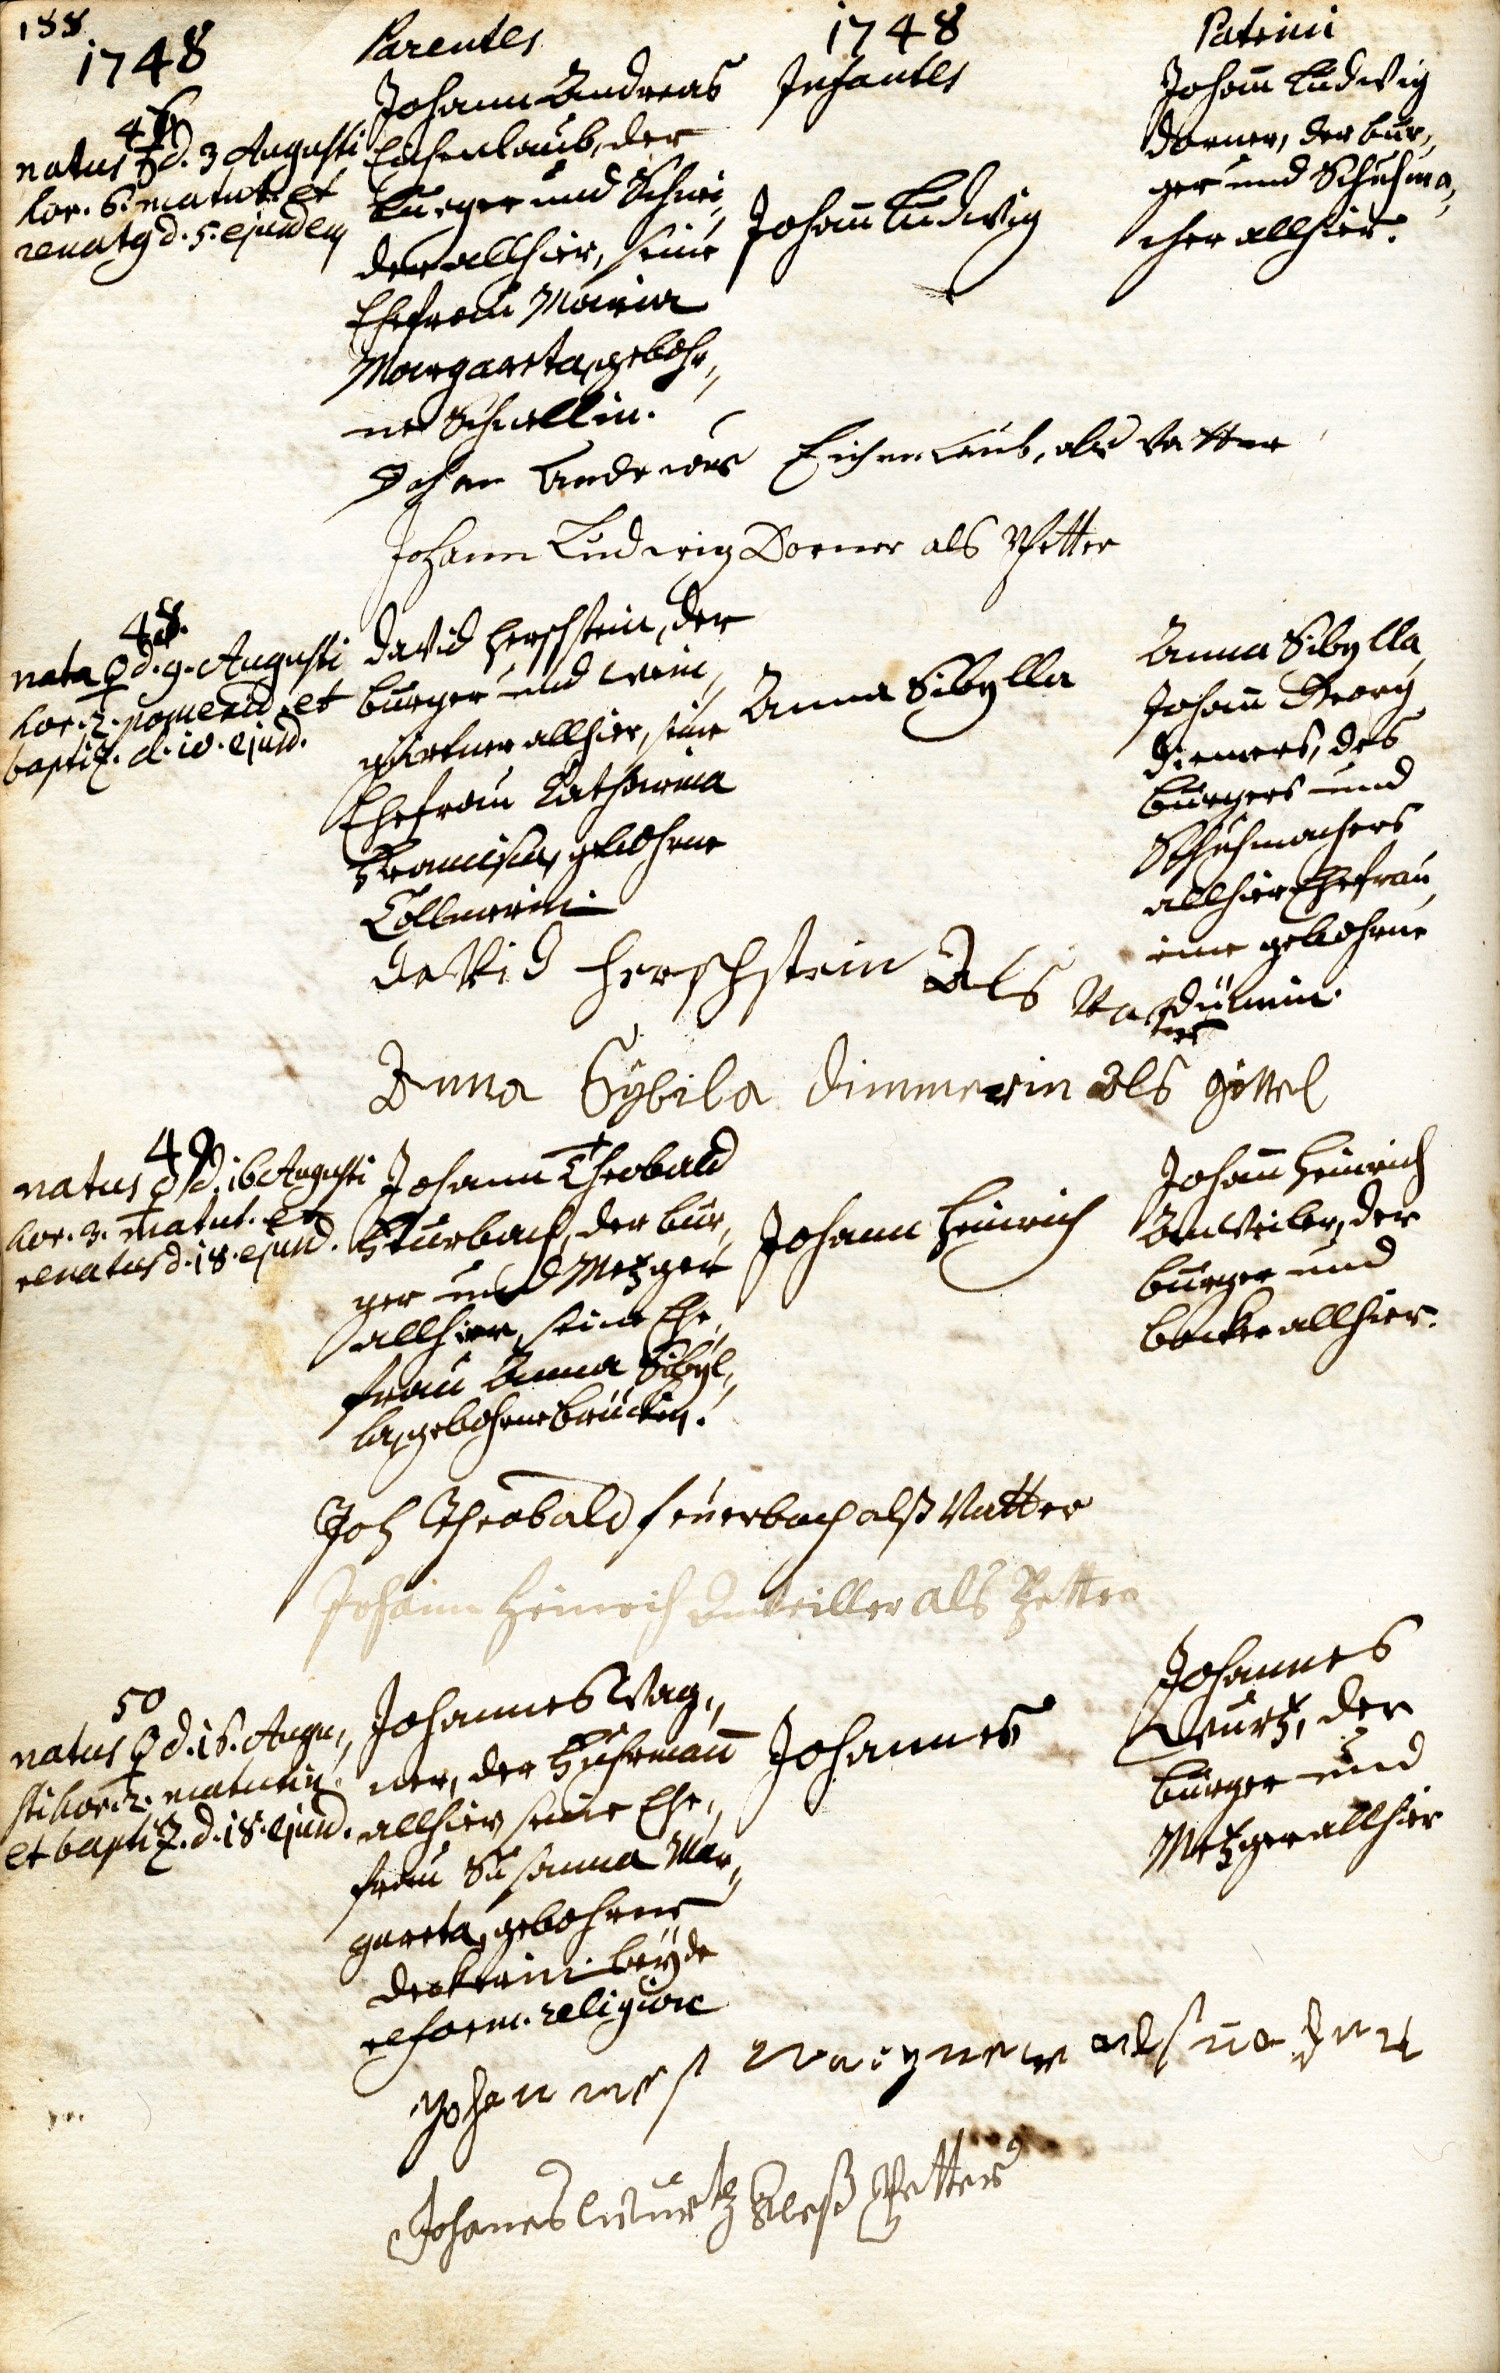 188.
1748
Parentes
1748
Infantes
Patrini
46
natus ♄ d. 3 Augusti
hor. 6. matut. et
renatg d. 5. ejusdem
Johann Andreas
Eichenlaub, der
Burger und Schnei„
der allhier, seine
Ehefrau Maria
Margareta, gebohr„
ne Schnellin.
Johann Ludwig
Johann Ludwig
Dorner, der bur„
ger und Schuhma„
cher allhier.
Johan Andreas Eichenlaub, als Vatter
Johann Ludwig Dorner als Petter
48.
nata ♀ d. 9. Augusti
hor. 2. pomerid. et
baptiz. d. 10. ejusd.
David Herschstein, der
burger und wein„
gärtner allhier, seine
Ehefrau Catharina
gebohrne
Anna Sibylla
Anna Sibylla,
Johann Georg
Diemers, des
burgers und
Schuhmachers
allhier Ehefrau,
eine gebohrne
David Herschstein Als Vatter
Anna Sybila Dimmerin als göttel
49
natus ♀ d. 16 Augusti
hor. 3. matut. et
renatus d. 18. ejusd.
Johann Theobald
Feuerbach, der bur„
ger und Metzger
allhier, seine Ehe„
frau Anna Sibyl„
la, gebohrne
Johann Heinrich
Johann Heinrich
Anweiler, der
burger und
becker allhier.
Joh Theobald feuerbach alß Vatter
Johann Heinrich Anweiller als Petter
50
natus ♀ d. 16. Augu„
sti hor. 2. matutin.
et baptiz. d. 18. ejusd.
Johannes Wag„
ner, der Fuhrmann
allhier seine Ehe„
frau Susanna Mar„
gareta, gebohrne
beyde
reform. religion
Johannes
Johannes
Wurtz, der
burger und
Metzger allhier
Johannes Wagner als
Johanes Wurtz Alß Petter